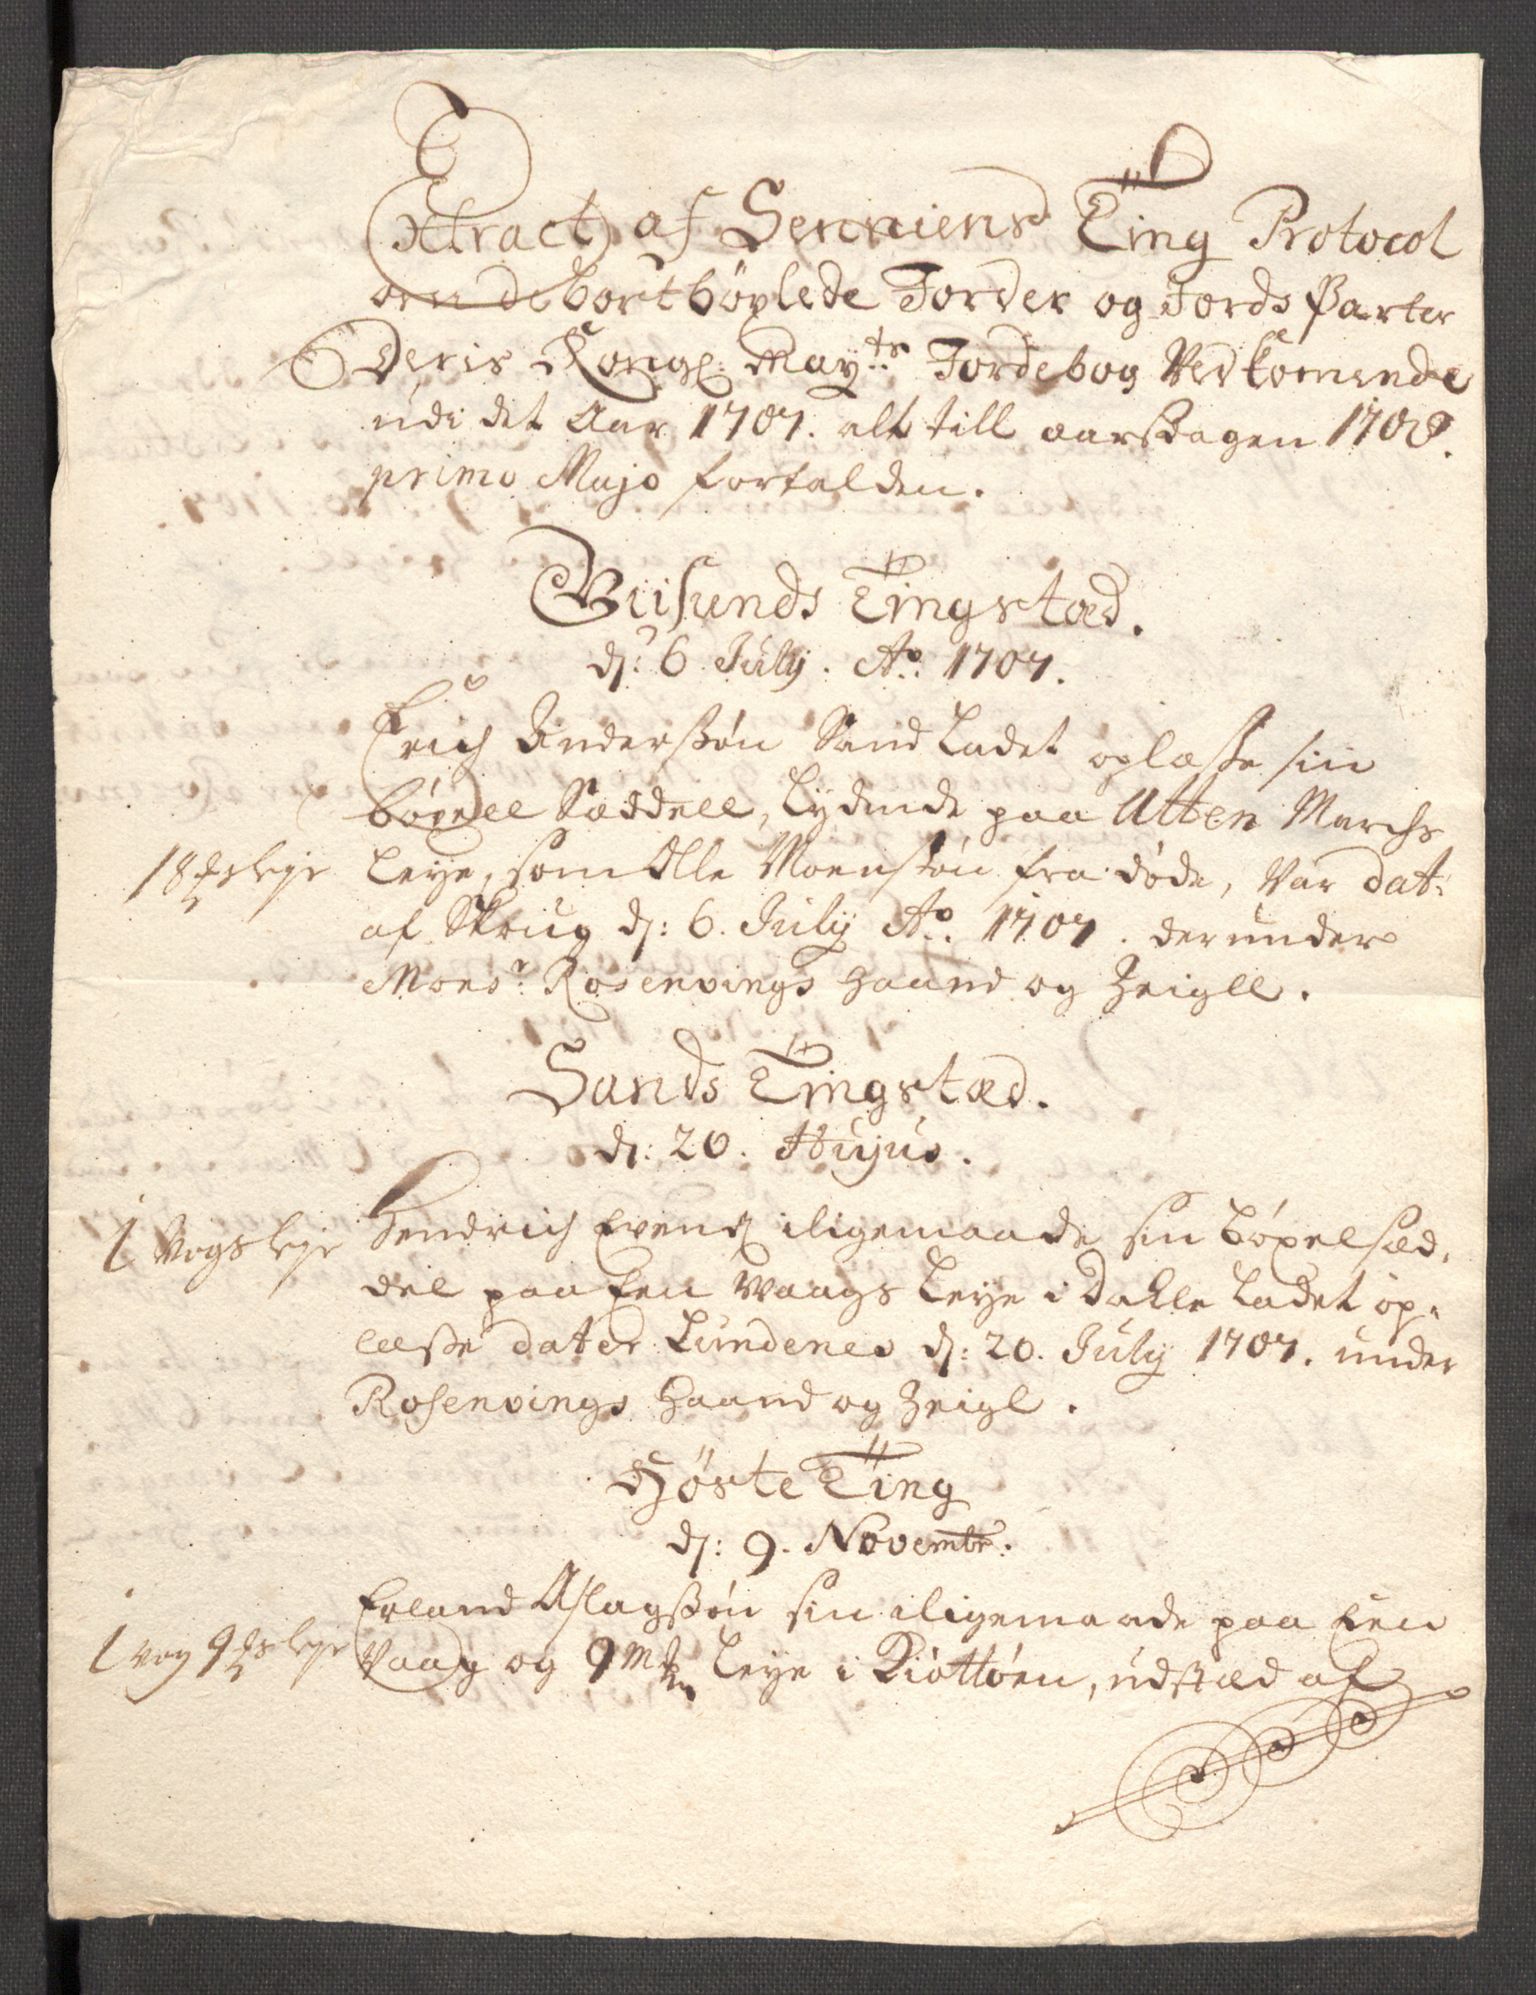 Extract af Senniens Ting Protocol
om de bortbøxlede Jorder og Jords Parter
Deris Kongl: May:ts Jordebog Vedkomende
udi det Aar 1707. alt till aarsdagen 1708.
primo Majo forfalden.
Giisunds Tingstæd.
d: 6 July. Ao: 1707.
Erich Anderßøn Sand Ladet oplæße sin
bøxell Sæddell, lydende paa Atten Marchs
18 leje
Leye, som Olle Moenßøn fradøde, Var dat:
af d: 6. July Ao. 1707. der under
Monsr: Rosenvings Haand og Zeigll.
Sands Tingstæd.
d: 20. Hujus.
1 Vogs leje
Hendrich Evens iligemaade sin bøxelsæd-
del paa Een Waags Leye i Ladet op-
læße dater Lundenes d: 20. July 1707. under
Rosenvings Haand og Zeigl.
Høste Ting
d: 9. Novembr:
Erland Aslagßøn sin iligemaade paa Een
1 vog 9 leje
Vaag og 9 Leye i Kiøttøen, udstæd af